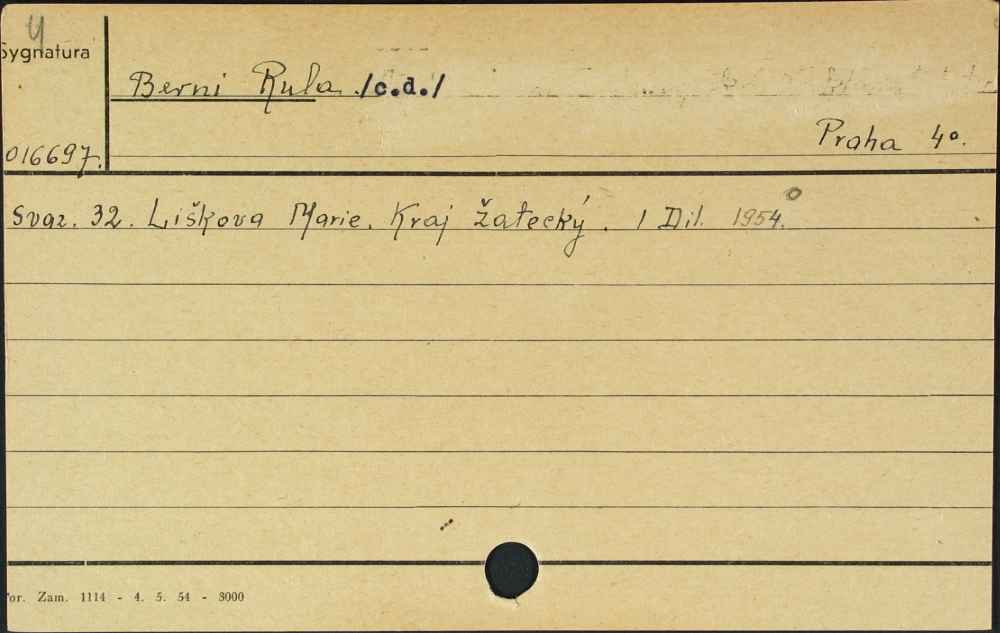 4
Sygnatura
Berni Rula /c.d./
Praha 4º.
016697.
Svaz. 32. Liškova Marie. Kraj Žatecký. I Dil. 1954.
Zam. 1114 - 4. 5. 54 - 3000